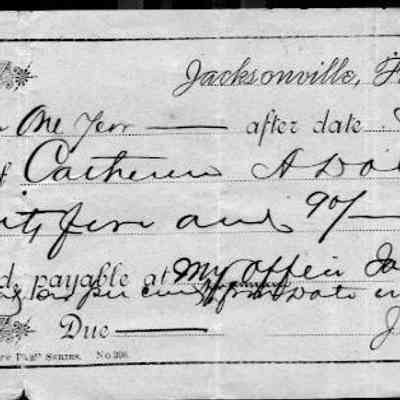 Jacksonville, F
One Year after date
f Catherin A Dol
ty five and 90/
d payable at my office Ja
per from Date
Due J
Series. No 298.